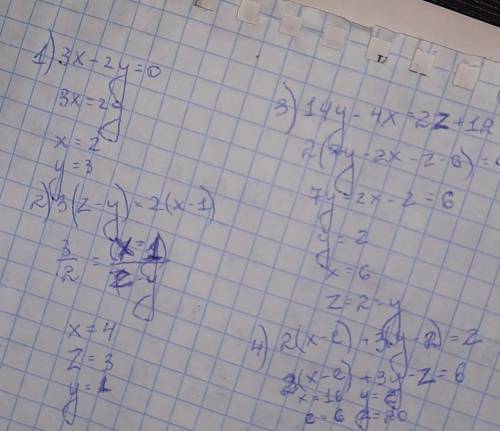 1) 3x - 2y = 0
3x = 2y
x = 2
y = 3
2) 3(z - y) = 2(x - 1)
3/2 = (x = 1)/z - y
x = 4
z = 3
y = 1
3) 14y - 4x = 2z + 12
2(7y - 2x - z - 6) =
7y = 2x - z = 6
y = 2
x = 6
z = 2 - y
4) 2(x - 2) + 3(y - 2) = z
2(x - 2) + 3y - z = 6
x = 16 y =
= 6 = 20